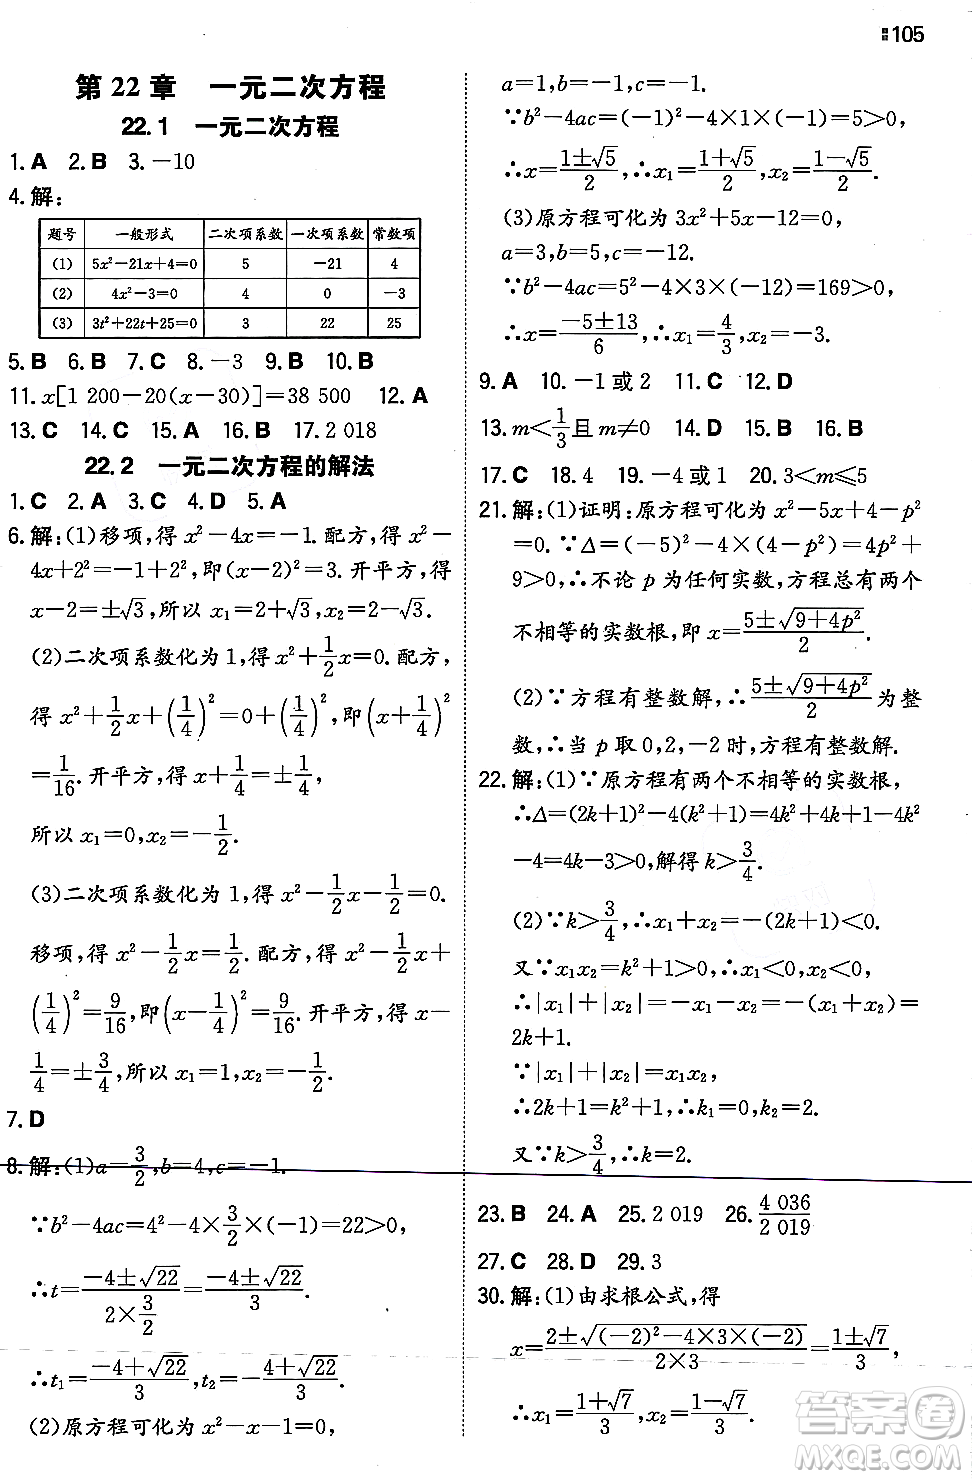 105
第 22 章 一元二次方程
22.1 一元二次方程
1. A 2. B 3. －10
4. 解：
题号 一般形式 二次项系数 一次项系数 常数项
(1) 5x²－21x＋4＝0 5 －21 4
(2) 4x²－3＝0 4 0 －3
(3) 3t²＋22t＋25＝0 3 22 25
5. B 6. B 7. C 8. －3 9. B 10. B
11. x[1 200－20(x－30)]＝38 500 12. A
13. C 14. C 15. A 16. B 17. 2 018
22.2 一元二次方程的解法
1. C 2. A 3. C 4. D 5. A
6. 解：(1)移项，得 x²－4x＝－1. 配方，得 x²－
4x＋2²＝－1＋2²，即(x－2)²＝3. 开平方，得
x－2＝±√3，所以 x₁＝2＋√3，x₂＝2－√3.
(2)二次项系数化为 1，得 x²＋1/2x＝0. 配方，
得 x²＋1/2x＋(1/4)²＝0＋(1/4)²，即(x＋1/4)²
＝1/16. 开平方，得 x＋1/4＝±1/4，
所以 x₁＝0，x₂＝－1/2.
(3)二次项系数化为 1，得 x²－1/2x－1/2＝0.
移项，得 x²－1/2x＝1/2. 配方，得 x²－1/2x＋
(1/4)²＝9/16，即(x－1/4)²＝9/16. 开平方，得 x－
1/4＝±3/4，所以 x₁＝1，x₂＝－1/2.
7. D
8. 解：(1)a＝3/2，b＝4，c＝－1.
∵b²－4ac＝4²－4×3/2×(－1)＝22＞0，
∴t＝(－4±√22)/(2×3/2)＝(－4±√22)/3.
∴t₁＝(－4＋√22)/3，t₂＝－(4＋√22)/3.
(2)原方程可化为 x²－x－1＝0，
a＝1，b＝－1，c＝－1.
∵b²－4ac＝(－1)²－4×1×(－1)＝5＞0，
∴x＝(1±√5)/2，∴x₁＝(1＋√5)/2，x₂＝(1－√5)/2.
(3)原方程可化为 3x²＋5x－12＝0，
a＝3，b＝5，c＝－12.
∵b²－4ac＝5²－4×3×(－12)＝169＞0，
∴x＝(－5±13)/6，∴x₁＝4/3，x₂＝－3.
9. A 10. －1 或 2 11. C 12. D
13. m＜1/3且 m≠0 14. D 15. B 16. B
17. C 18. 4 19. －4 或 1 20. 3＜m≤5
21. 解：(1)证明：原方程可化为 x²－5x＋4－p²
＝0. ∵Δ＝(－5)²－4×(4－p²)＝4p²＋
9＞0，∴不论 p 为任何实数，方程总有两个
不相等的实数根，即 x＝(5±√(9＋4p²))/2.
(2)∵方程有整数解，∴(5±√(9＋4p²))/2为整
数，∴当 p 取 0，2，－2 时，方程有整数解.
22. 解：(1)∵原方程有两个不相等的实数根，
∴Δ＝(2k＋1)²－4(k²＋1)＝4k²＋4k＋1－4k²
－4＝4k－3＞0，解得 k＞3/4.
(2)∵k＞3/4，∴x₁＋x₂＝－(2k＋1)＜0.
又∵x₁x₂＝k²＋1＞0，∴x₁＜0，x₂＜0，
∴|x₁|＋|x₂|＝－x₁－x₂＝－(x₁＋x₂)＝
2k＋1.
∵|x₁|＋|x₂|＝x₁x₂，
∴2k＋1＝k²＋1，∴k₁＝0，k₂＝2.
又∵k＞3/4，∴k＝2.
23. B 24. A 25. 2 019 26. 4 036/2 019
27. C 28. D 29. 3
30. 解：(1)由求根公式，得
x＝(2±√((－2)²－4×3×(－2)))/(2×3)＝(1±√7)/3，
∴x₁＝(1＋√7)/3，x₂＝(1－√7)/3.
答案圈
MXQE.COM